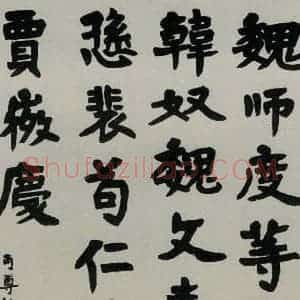 魏師度等
韓奴魏文
裴苟仁
賈慶
Shufaziliao.COM